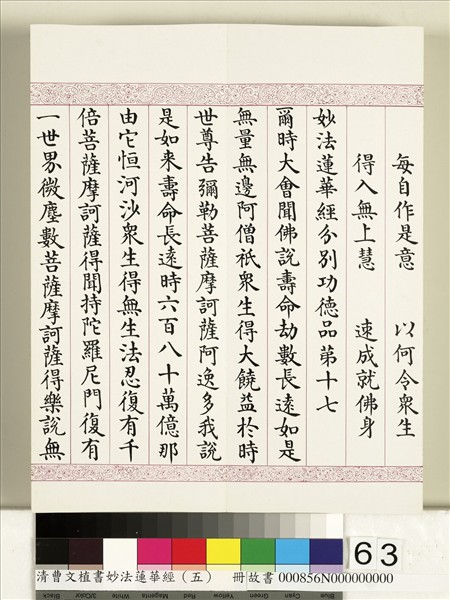 每自作是意　以何令眾生
得入無上慧　速成就佛身
妙法蓮華經分別功德品第十七
爾時大會聞佛說壽命劫數長遠如是
無量無邊阿僧祇眾生得大饒益於時
世尊告彌勒菩薩摩訶薩阿逸多我說
是如來壽命長遠時六百八十萬億那
由它恒河沙眾生得無生法忍復有千
倍菩薩摩訶薩得聞持陀羅尼門復有
一世界微塵數菩薩摩訶薩得樂說無
63
Black
3/Color
White
Magenta
Red
Yellow
Green
Cyan
Blue
清曹文植書妙法蓮華經（五）　冊故書 000856N000000000